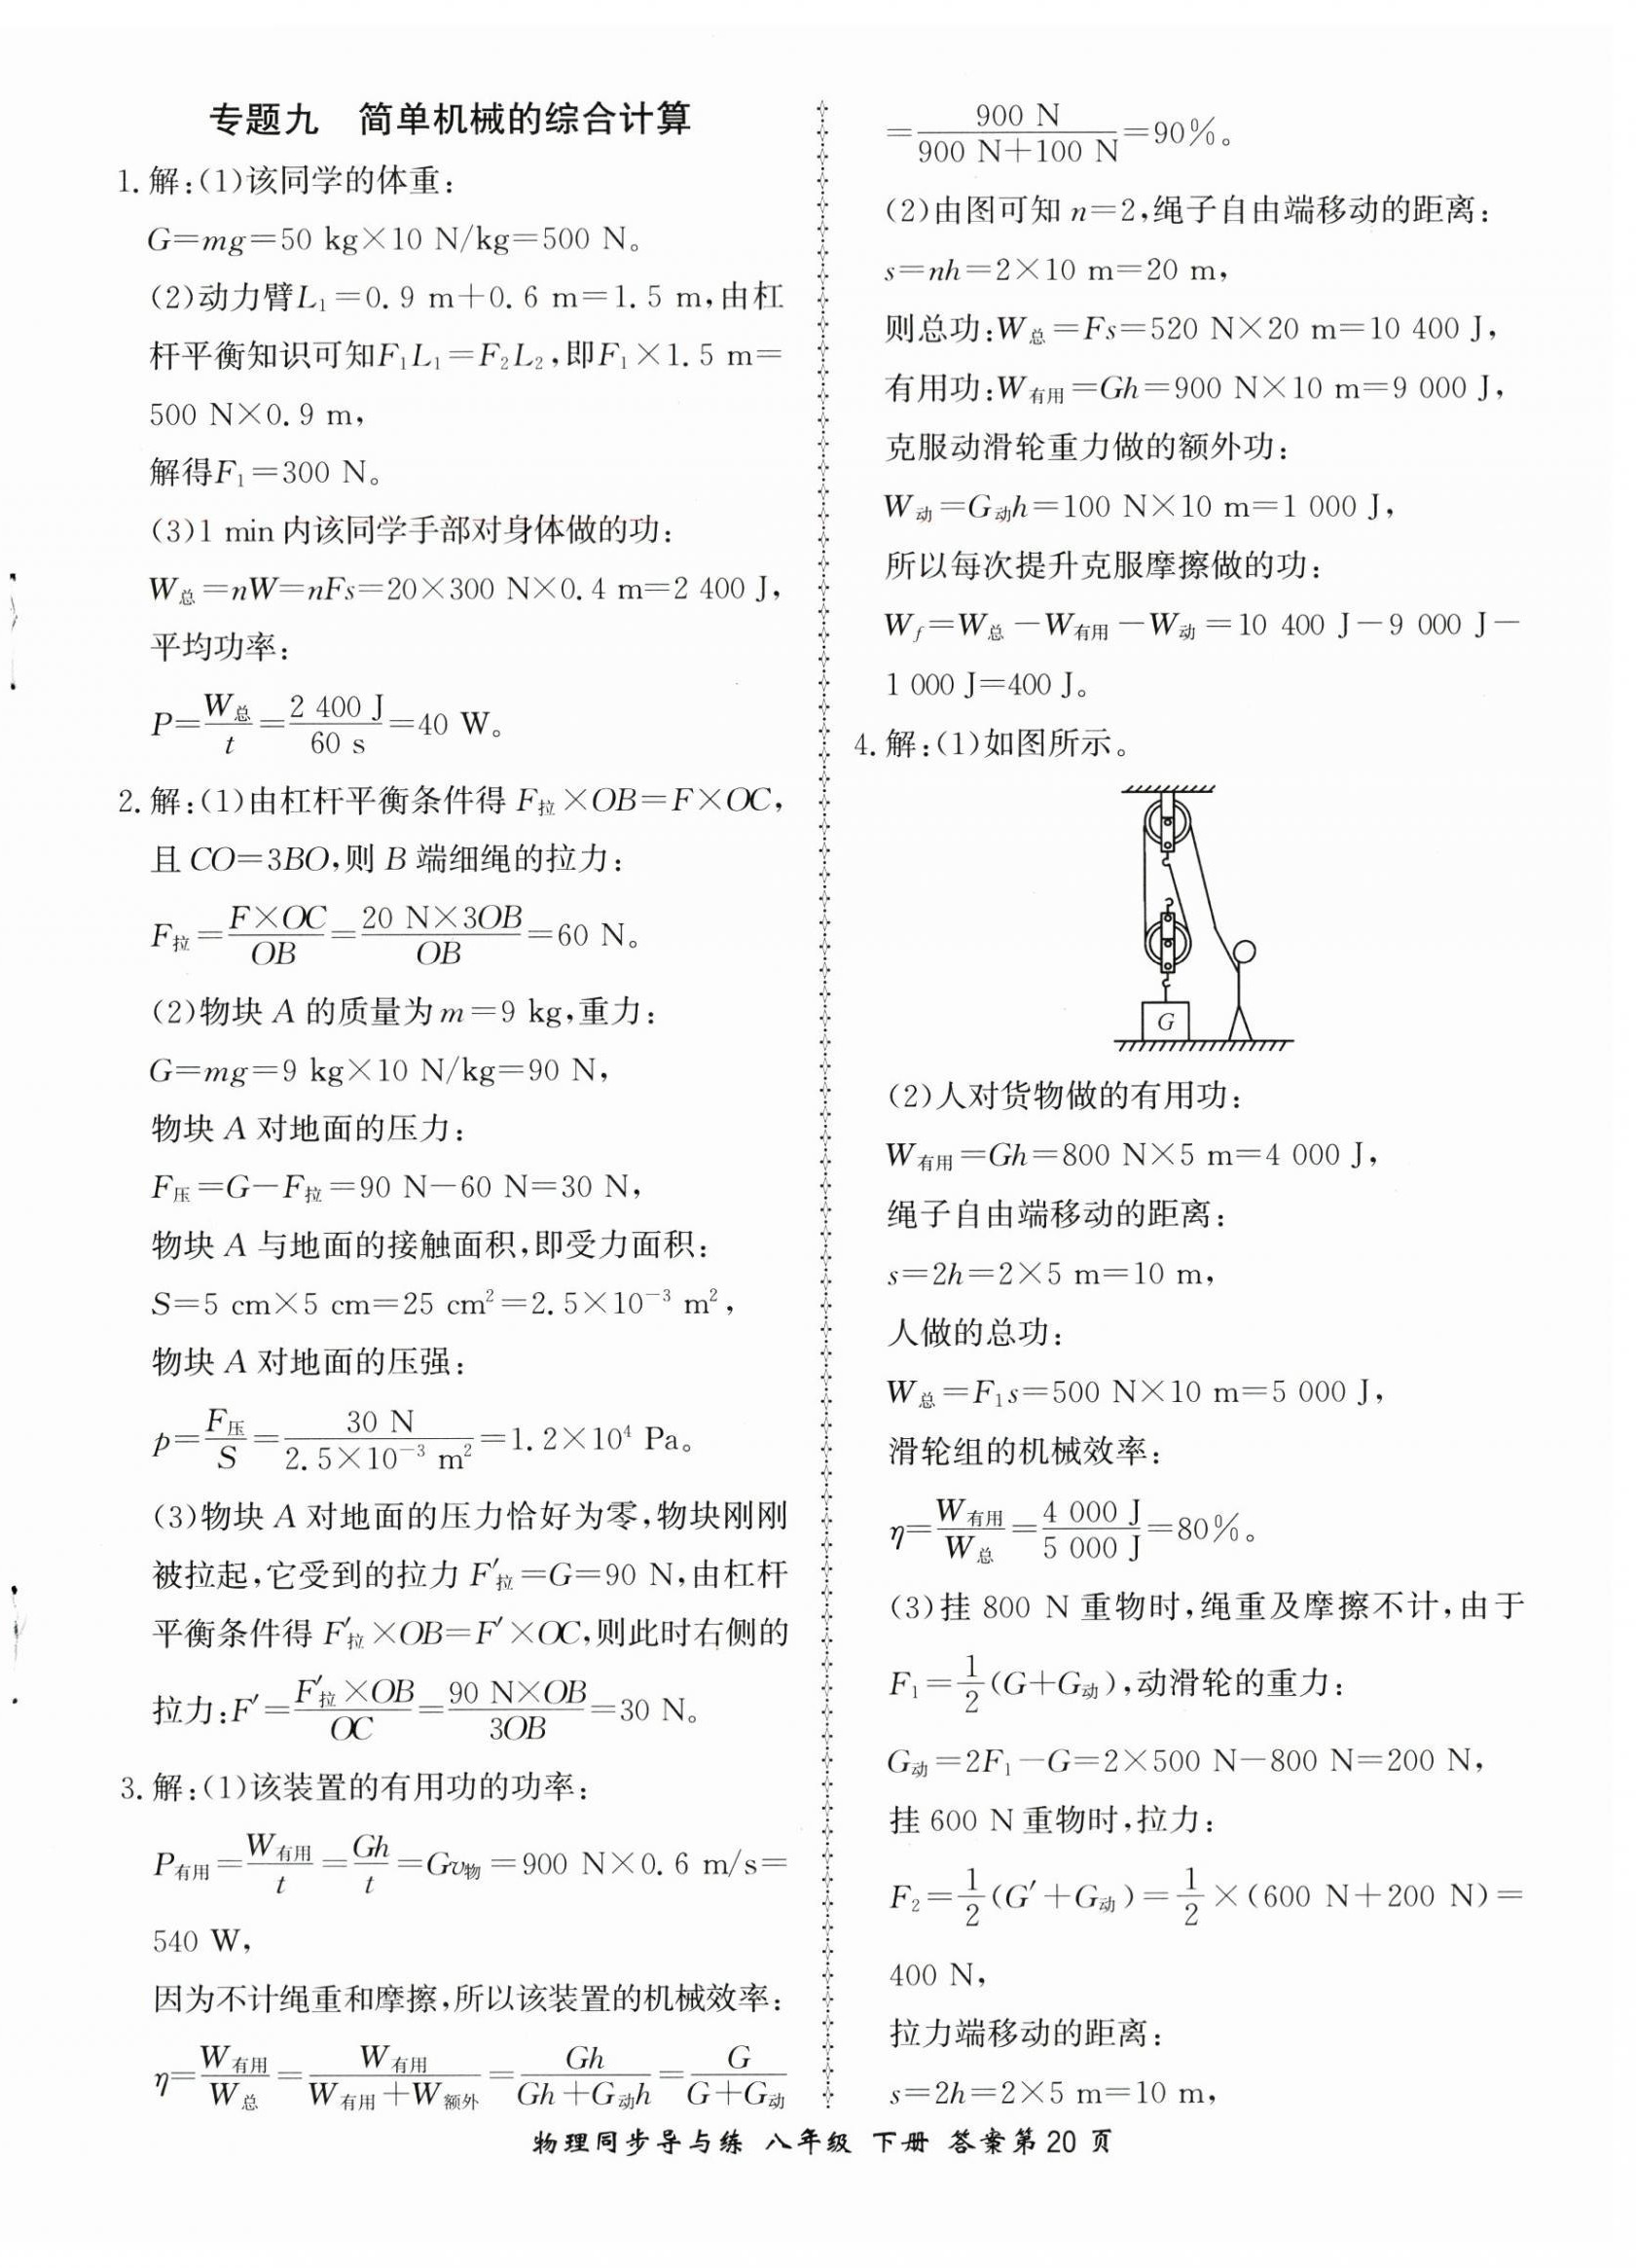 专题九 简单机械的综合计算
1. 解:(1)该同学的体重:
G=mg=50 kg×10 N/kg=500 N。
(2)动力臂L₁=0.9 m+0.6 m=1.5 m,由杠
杆平衡知识可知F₁L₁=F₂L₂,即F₁×1.5 m=
500 N×0.9 m,
解得F₁=300 N。
(3)1 min内该同学手部对身体做的功:
W总=nW=nFs=20×300 N×0.4 m=2 400 J,
平均功率:
P=W总/t=2 400 J/60 s=40 W。
2. 解:(1)由杠杆平衡条件得 F拉×OB=F×OC,
且 CO=3BO,则 B 端细绳的拉力:
F拉=F×OC/OB=20 N×3OB/OB=60 N。
(2)物块 A 的质量为 m=9 kg,重力:
G=mg=9 kg×10 N/kg=90 N,
物块 A 对地面的压力:
F压=G-F拉=90 N-60 N=30 N,
物块 A 与地面的接触面积,即受力面积:
S=5 cm×5 cm=25 cm²=2.5×10⁻³ m²,
物块 A 对地面的压强:
p=F压/S=30 N/2.5×10⁻³ m²=1.2×10⁴ Pa。
(3)物块 A 对地面的压力恰好为零,物块刚刚
被拉起,它受到的拉力 F′拉=G=90 N,由杠杆
平衡条件得 F′拉×OB=F′×OC,则此时右侧的
拉力:F′=F′拉×OB/OC=90 N×OB/3OB=30 N。
3. 解:(1)该装置的有用功的功率:
P有用=W有用/t=Gh/t=Gv物=900 N×0.6 m/s=
540 W,
因为不计绳重和摩擦,所以该装置的机械效率:
η=W有用/W总=W有用/W有用+W额外=Gh/Gh+G动h=G/G+G动
=900 N/900 N+100 N=90%。
(2)由图可知 n=2,绳子自由端移动的距离:
s=nh=2×10 m=20 m,
则总功:W总=Fs=520 N×20 m=10 400 J,
有用功:W有用=Gh=900 N×10 m=9 000 J,
克服动滑轮重力做的额外功:
W动=G动h=100 N×10 m=1 000 J,
所以每次提升克服摩擦做的功:
Wf=W总-W有用-W动=10 400 J-9 000 J-
1 000 J=400 J。
4. 解:(1)如图所示。
G
(2)人对货物做的有用功:
W有用=Gh=800 N×5 m=4 000 J,
绳子自由端移动的距离:
s=2h=2×5 m=10 m,
人做的总功:
W总=F₁s=500 N×10 m=5 000 J,
滑轮组的机械效率:
η=W有用/W总=4 000 J/5 000 J=80%。
(3)挂 800 N 重物时,绳重及摩擦不计,由于
F₁=1/2(G+G动),动滑轮的重力:
G动=2F₁-G=2×500 N-800 N=200 N,
挂 600 N 重物时,拉力:
F₂=1/2(G′+G动)=1/2×(600 N+200 N)=
400 N,
拉力端移动的距离:
s=2h=2×5 m=10 m,
物理同步导与练 八年级 下册 答案第 20 页